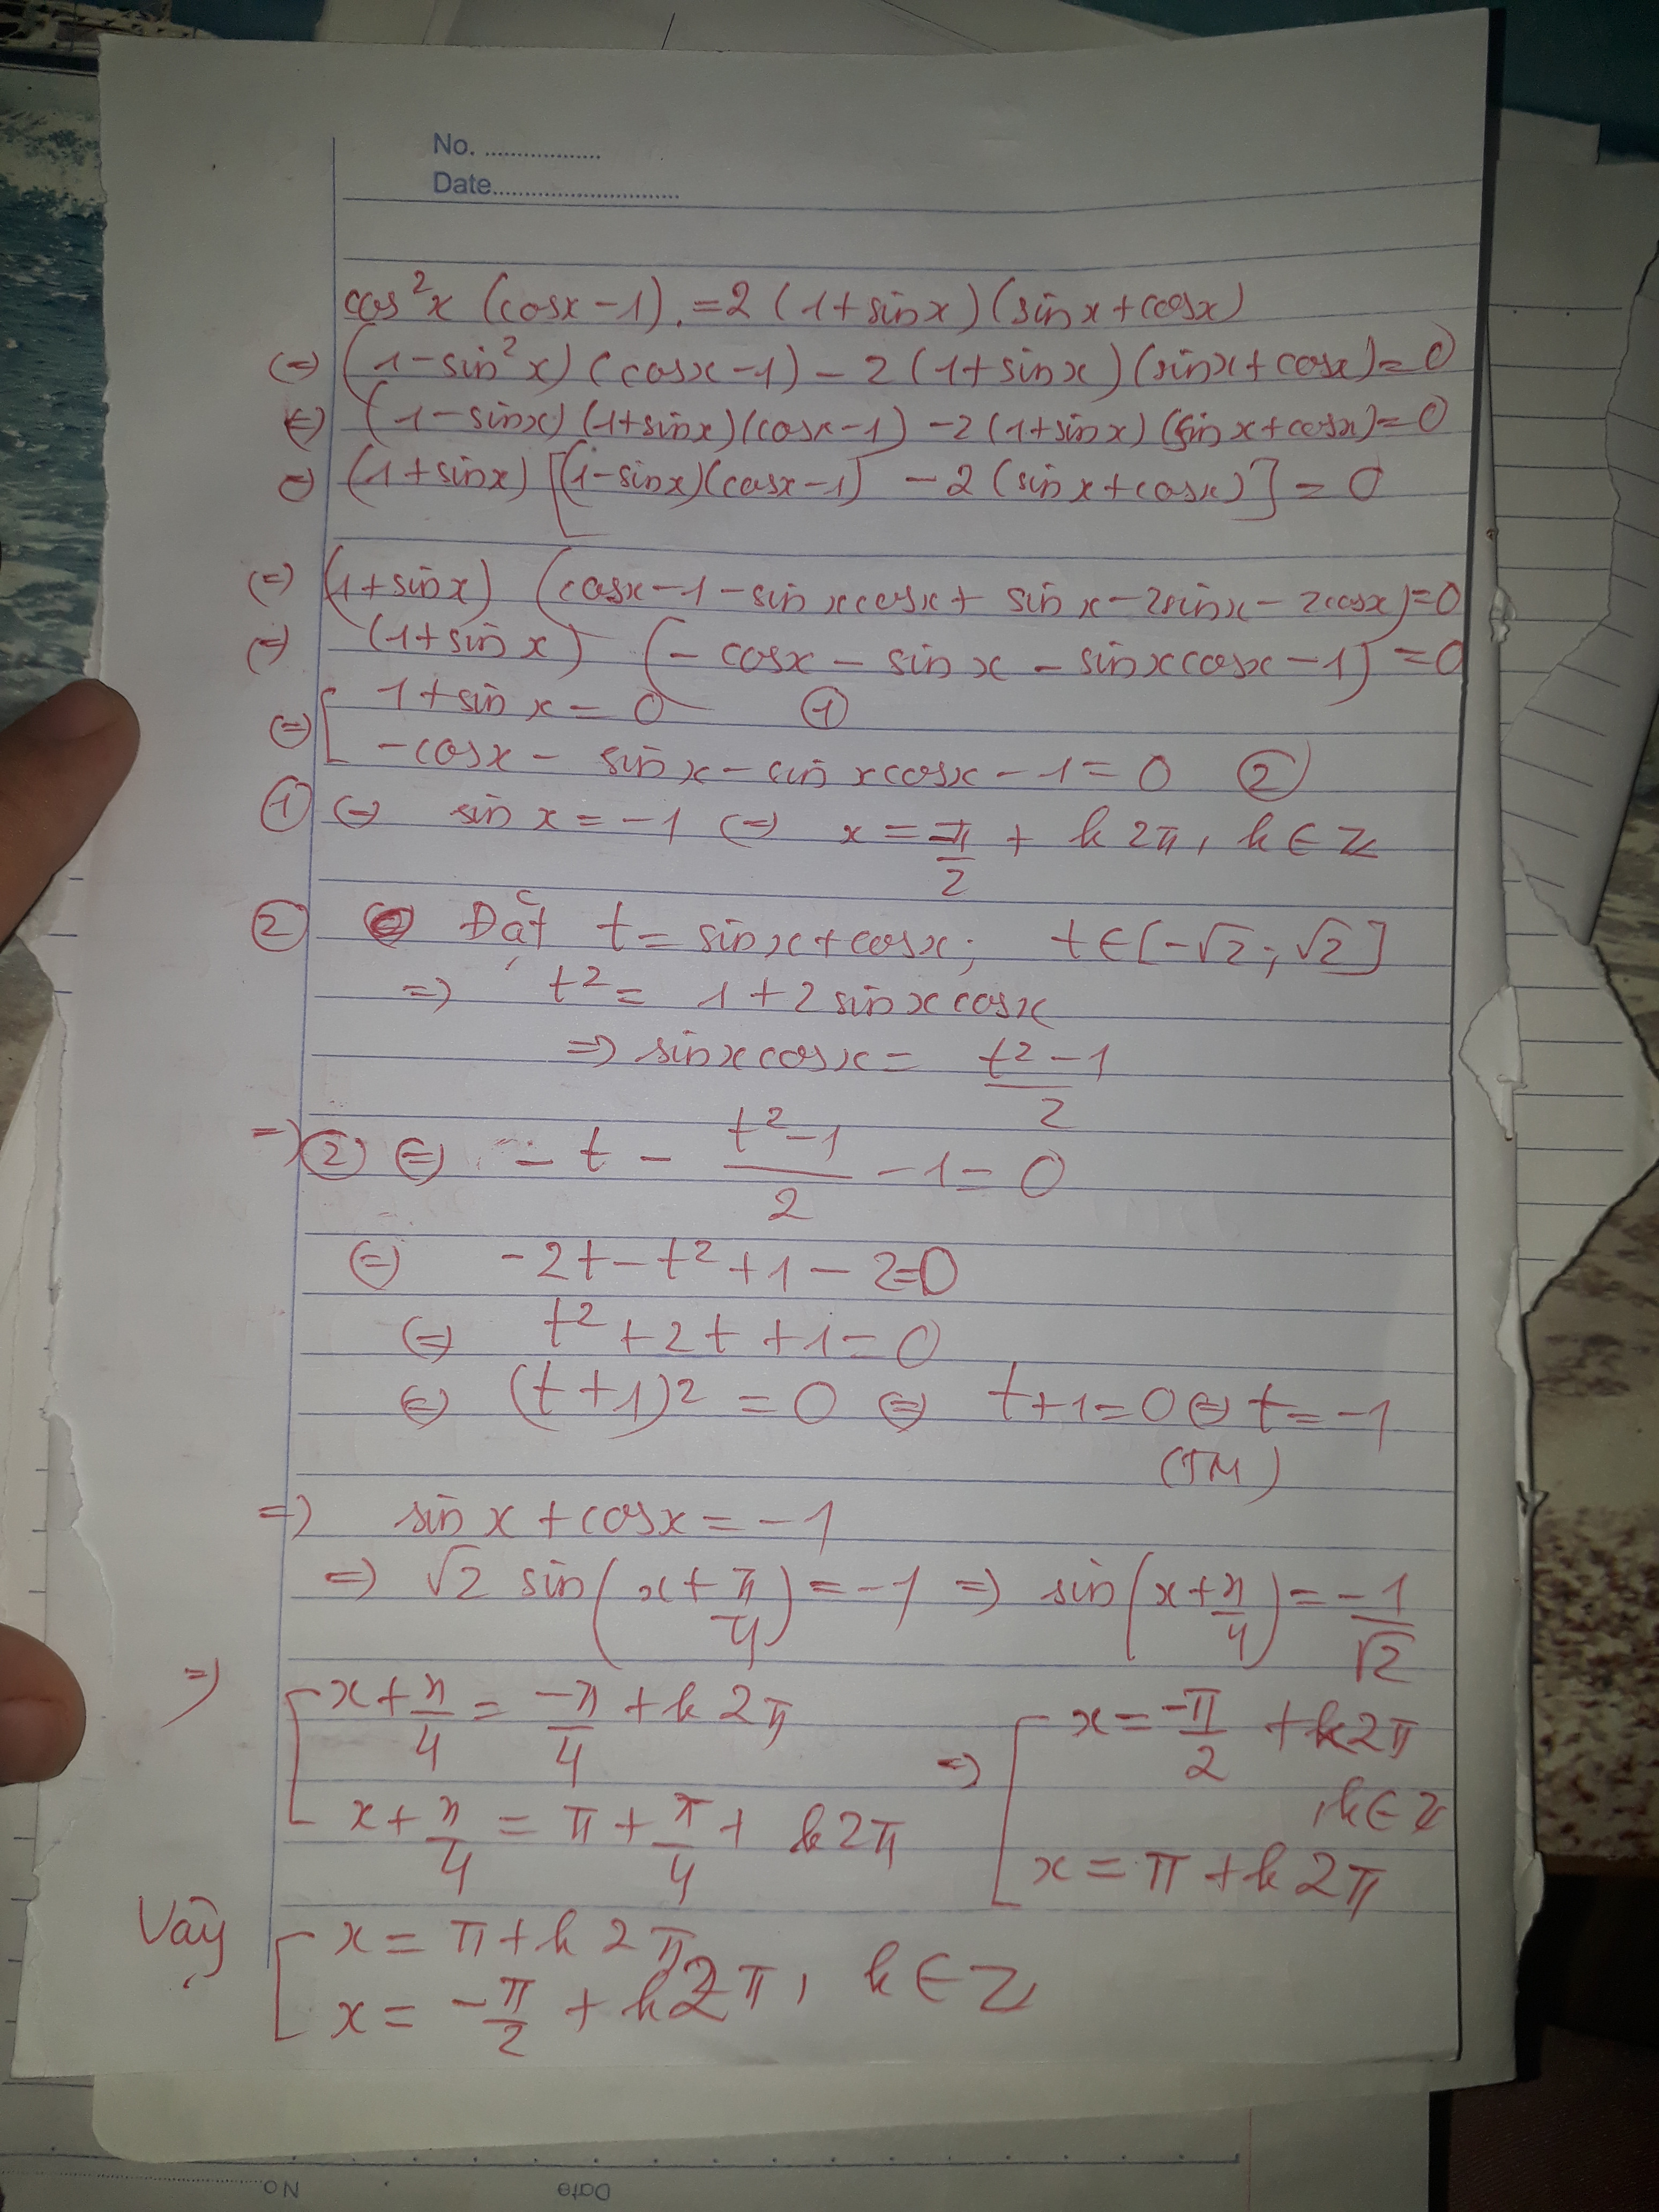 No. ..................
Date..............................
cos²x (cosx-1). =2 (1+sinx)(sinx+cosx)
(=) (1-sin²x)(cosx-1) - 2(1+sinx)(sinx+cosx)=0
(=) (1-sinx)(1+sinx)(cosx-1) -2(1+sinx)(sinx+cosx)=0
(=) (1+sinx) [(1-sinx)(cosx-1) - 2(sinx+cosx)] = 0
(=) (1+sinx) (cosx-1-sinxcosx+ sinx-2sinx-2cosx)=0
(=) (1+sinx) (-cosx - sinx - sinxcosx-1) =0
(=) [ 1+sinx = 0 ①
-cosx - sinx - sinxcosx - 1 = 0 ②
① (=) sinx = -1 (=) x = -π/2 + k2π, k∈Z
② Đặt t = sinx+cosx; t∈[-√2; √2]
=> t² = 1+2sinxcosx
=> sinxcosx = (t²-1)/2
=> ② (=) -t - (t²-1)/2 - 1 = 0
(=) -2t-t²+1-2=0
(=) t²+2t+1=0
(=) (t+1)² = 0 (=) t+1=0 (=) t=-1
(TM)
=> sinx+cosx = -1
=> √2 sin(x+π/4) = -1 => sin(x+π/4) = -1/√2
=> [ x+π/4 = -π/4 + k2π => [ x = -π/2 + k2π
, k∈Z
x+π/4 = π+π/4 + k2π x = π+k2π
Vậy [ x = π+k2π
x = -π/2 + k2π, k∈Z
No....................
Date